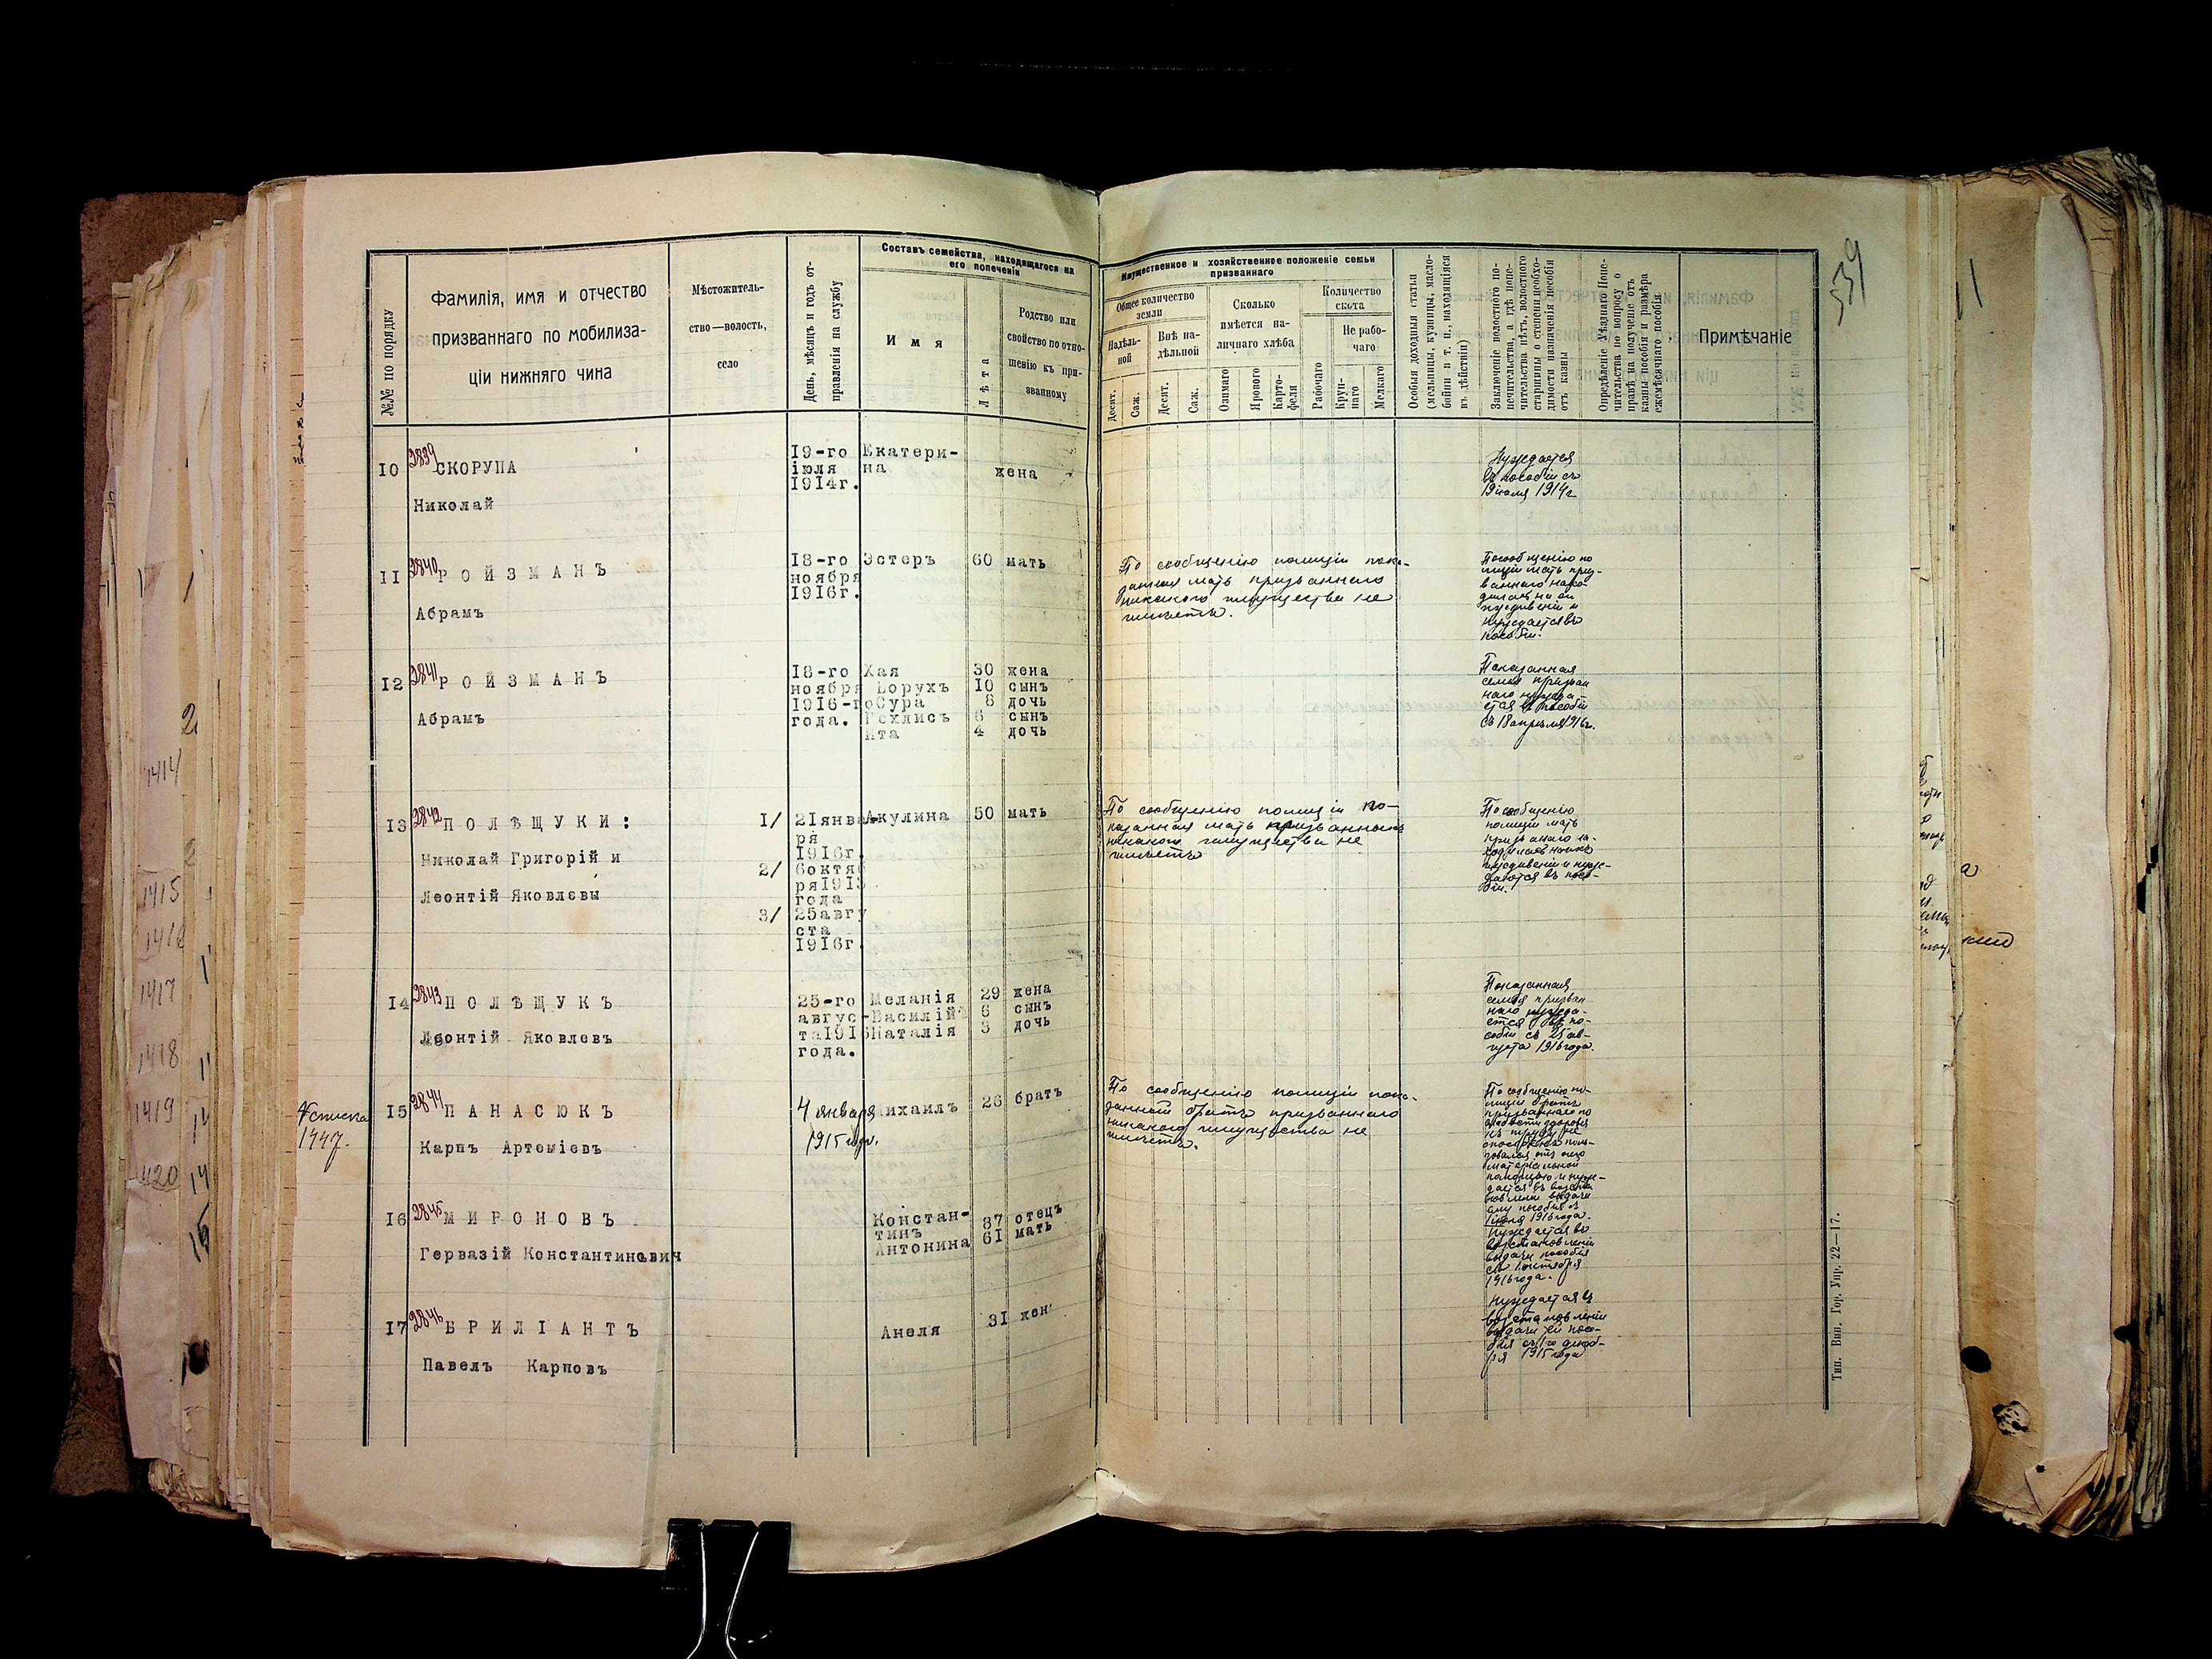 №№ по порядку
Фамилія, имя и отчество
призваннаго по мобилиза-
ціи нижняго чина
Мѣстожитель-
ство—волость,
село
День, мѣсяцъ и годъ от-
правленія на службу
Составъ семейства, находящагося на
его попеченіи
Имя
Лѣта
Родство или
свойство по отно-
шенію къ при-
званному
Имущественное и хозяйственное положеніе семьи
призваннаго
Общее количество
земли
Надѣль-
ной
Внѣ на-
дѣльной
Десят.
Саж.
Десят.
Саж.
Сколько
имѣется на-
личнаго хлѣба
Озимаго
Ярового
Карто-
феля
Количество
скота
Рабочаго
Не рабо-
чаго
Круп-
наго
Мелкаго
Особыя доходныя статьи
(мельницы, кузницы, масло-
бойни и т. п., находящіяся
въ дѣйствіи)
Заключеніе волостного по-
печительства, а гдѣ попе-
чительства нѣтъ, волостного
старшины о степени необхо-
димости назначенія пособія
отъ казны
Опредѣленіе Уѣзднаго Попе-
чительства по вопросу о
правѣ на полученіе отъ
казны пособія и размѣра
ежемѣсячнаго пособія
Примѣчаніе
539
10 2839 СКОРУПА
Николай
19-го
іюля
1914г.
Екатери-
на
жена
Нуждается
въ пособіи съ
19 іюля 1914г
11 2840 РОЙЗМАНЪ
Абрамъ
18-го
ноября
1916г.
Эстеръ 60 мать
По сообщенію полиціи пока-
занная мать призваннаго
никакого имущества не
имѣетъ.
По сообщенію по
лиціи мать приз-
ваннаго нахо-
дилась на его
иждивеніи и
нуждается въ
пособіи.
12 2841 РОЙЗМАНЪ
Абрамъ
18-го
ноября
1916-го
года.
Хая 30 жена
Борухъ 10 сынъ
Сура 8 дочь
Рохлисъ 6 сынъ
Ита 4 дочь
Показанная
семья призван
наго нужда-
ется въ пособіи
съ 18 апрѣля 1916г.
13 2842 ПОЛѢЩУКИ:
Николай Григорій и
Леонтій Яковлевы
1/ 21янва-
ря
1916г.
2/ 6октяб
ря1913
года
3/ 25авгу
ста
1916г.
Акулина 50 мать
По сообщенію полиціи по-
казанная мать призванныхъ
никакого имущества не
имѣетъ
По сообщенію
полиціи мать
призваннаго на-
ходилась на ихъ
иждивеніи и нуж-
дается въ посо-
біи.
14 2843 ПОЛѢЩУКЪ
Леонтій Яковлевъ
25-го
авгус-
та1916
года.
Меланія 29 жена
Василій 6 сынъ
Наталія 3 дочь
Показанная
семья призван
наго нужда-
ется въ по-
собіи съ 25 ав-
густа 1916 года.
1447.
15 2844 ПАНАСЮКЪ
Карпъ Артеміевъ
4 января
1915 года.
Михаилъ 26 братъ
По сообщенію полиціи пока-
занный братъ призваннаго
никакого имущества не
имѣетъ.
По сообщенію по-
лиціи братъ
призваннаго по
слабости здоровья
къ труду не
способенъ поль-
зовался отъ него
матеріальной
помощью и нуж-
дается въ возста
новленіи выдачи
ему пособія съ
1 іюня 1916 года.
16 2845 МИРОНОВЪ
Гервазій Константиновичъ
Констан-
тинъ 87 отецъ
Антонина 61 мать
Нуждается въ
возстановленіи
выдачи пособія
съ 1 октября
1916 года.
17 2846 БРИЛІАНТЪ
Павелъ Карповъ
Анеля 31 жен
Нуждается въ
возстановленіи
выдачи ей посо-
бія съ 1-го декаб-
ря 1915 года
Тип. Вин. Гор. Упр. 22—17.
1414
1415
1416
1417
1418
1419
1420